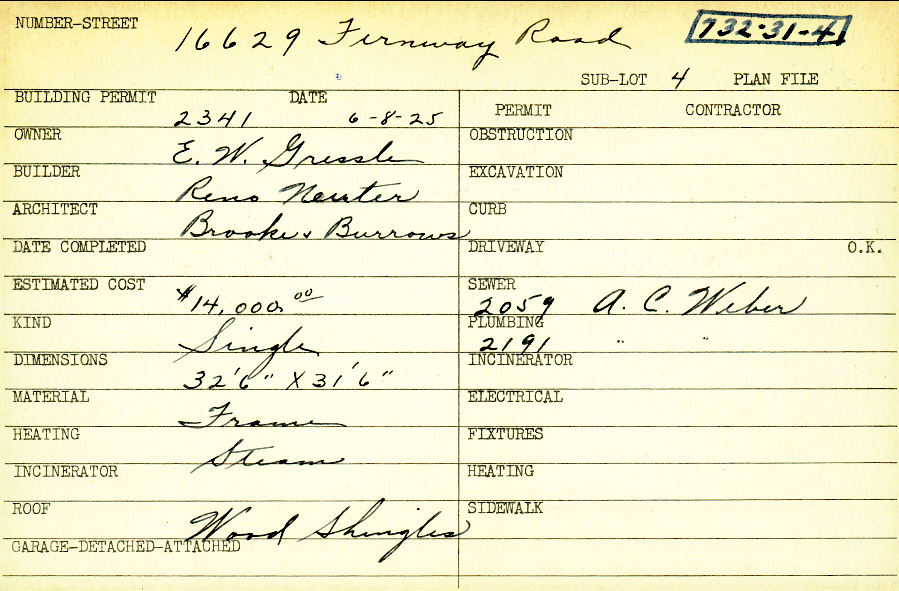 NUMBER-STREET 16629 Fernway Road 732-31-4
SUB-LOT 4 PLAN FILE
BUILDING PERMIT 2341 DATE 6-8-25
OWNER E. W. Gressle
BUILDER Reno
ARCHITECT Brooke & Burrows
DATE COMPLETED
ESTIMATED COST $14,000.00
KIND Single
DIMENSIONS 32'6" X 31'6"
MATERIAL Frame
HEATING Steam
INCINERATOR
ROOF Wood Shingles
GARAGE-DETACHED-ATTACHED
PERMIT CONTRACTOR
OBSTRUCTION
EXCAVATION
CURB
DRIVEWAY O.K.
SEWER 2059 A. C. Weber
PLUMBING 2191 " "
INCINERATOR
ELECTRICAL
FIXTURES
HEATING
SIDEWALK